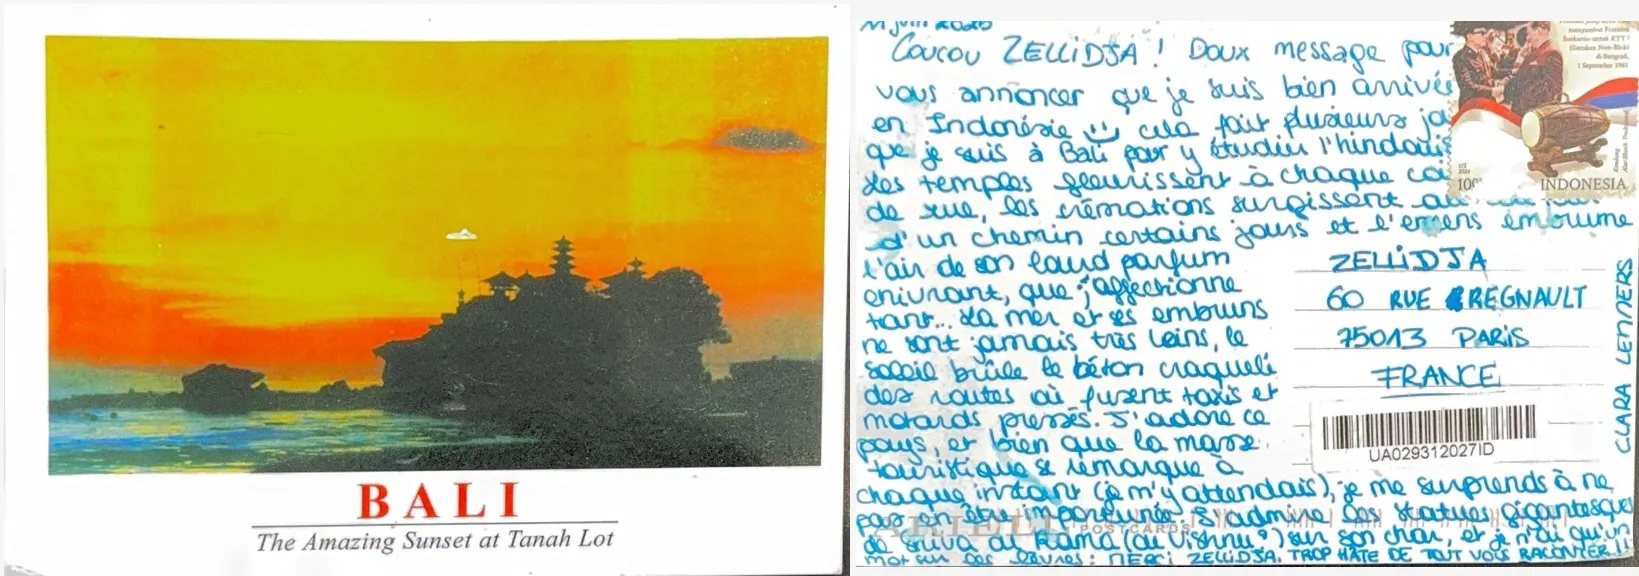 BALI
The Amazing Sunset at Tanah Lot
11 juin 2026
Coucou ZELLIDJA ! Doux message pour
vous annoncer que je suis bien arrivée
en Indonésie cela fait plusieurs
que je suis à Bali pour y étudier l'hindouis
Les temples fleurissent à chaque
de rue, les crémations surgissent
d'un chemin certains jours et l'encens embrume
l'air de son lourd parfum
enivrant, que j'affectionne
tant... La mer et ses embruns
ne sont jamais très loins, le
soleil brûle le béton craquelé
des routes où fusent taxis et
motards pressés. J'adore ce
pays et bien que la masse
touristique se remarque à
chaque instant (je m'y attendais), je me surprends à ne
pas en être importunée. J'admire les statues gigantesques
de Shiva ou Rama (ou Vishnu ?) sur son char, et je n'ai qu'un
mot sur les lèvres : MERCI ZELLIDJA. TROP HÂTE DE TOUT VOUS RACONTER !!
menyambut Presiden
Soekarno untuk KTT I
(Gerakan Non-Blok)
di Beograd,
1 September 1961
INDONESIA
ZELLIDJA
60 RUE REGNAULT
75013 PARIS
FRANCE
CLARA LENTIERS
UA029312027ID
POSTCARDS